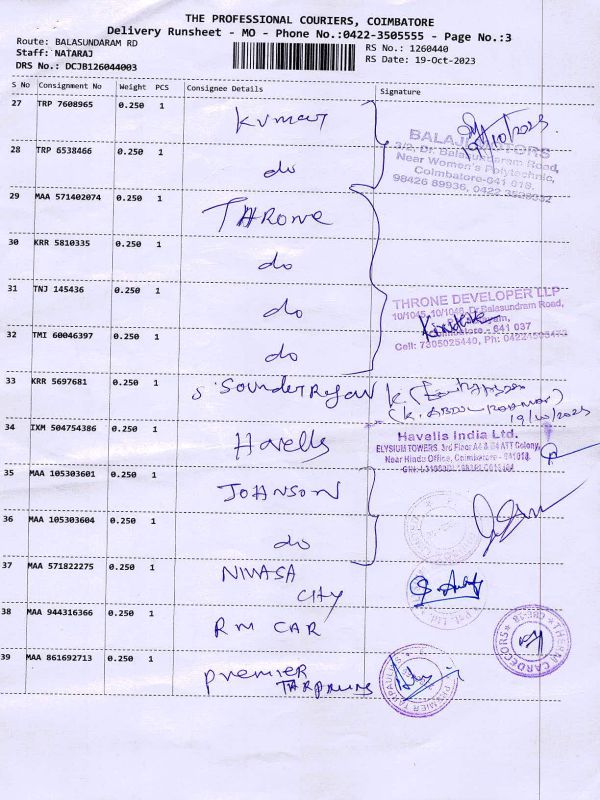 THE PROFESSIONAL COURIERS, COIMBATORE
Delivery Runsheet - MO - Phone No.:0422-3505555 - Page No.:3
Route: BALASUNDARAM RD
Staff: NATARAJ
DRS No.: DCJB126044003
RS No.: 1260440
RS Date: 19-Oct-2023
S No Consignment No Weight PCS Consignee Details Signature
27 TRP 7608965 0.250 1 Kumar 19/10/2023
BALAJI
3/2, Dr. Balasundaram Road,
Near Women's Polytechnic,
Coimbatore-641 018.
98426 89936, 0422
28 TRP 6538466 0.250 1 do
29 MAA 571402074 0.250 1 THRONE
30 KRR 5810335 0.250 1 do
31 TNJ 145436 0.250 1 do
THRONE DEVELOPER LLP
10/1045, 10/1046, Dr Balasundram Road,
Coimbatore - 641 037
Cell: 7305025440, Ph: 04224505475
32 TMI 60046397 0.250 1 do
33 KRR 5697681 0.250 1 S. SounderRajan
(K. ABDUL RAHMAN)
19/10/2023
34 IXM 504754386 0.250 1 Havells
Havells India Ltd.
ELYSIUM TOWERS, 3rd Floor A4 & B4 ATT Colony,
Near Hindu Office, Coimbatore - 641018.
35 MAA 105303601 0.250 1 JOHNSON
36 MAA 105303604 0.250 1 do
37 MAA 571822275 0.250 1 NIVASA
CITY
38 MAA 944316366 0.250 1 RM CAR
THE RM CARDECORS
CBE-18
39 MAA 861692713 0.250 1 Premier
TARPAULINS
PREMIER TARPAULINS